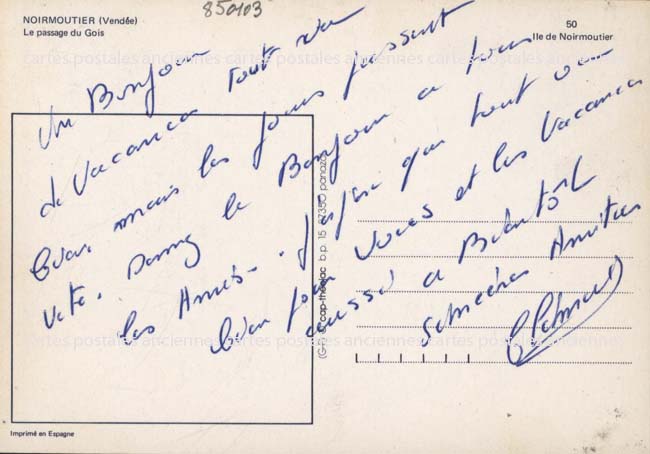 850103
NOIRMOUTIER (Vendée)
Le passage du Gois
50
Ile de Noirmoutier
cartes postales anciennes cartes postales anciennes cartes postales anciennes
Un Bonjour
de Vacances Tout va
bien mais les jours passent
vite. le Bonjour a tous
les Amis. J'espère que tout va
bien pour vous et les Vacances
aussi a Bientôt
Sincères Amitiés
(G-F) cap-théojac b.p. 15 87350 panazol
cartes postales anciennes cartes postales anciennes cartes postales anciennes
Imprimé en Espagne